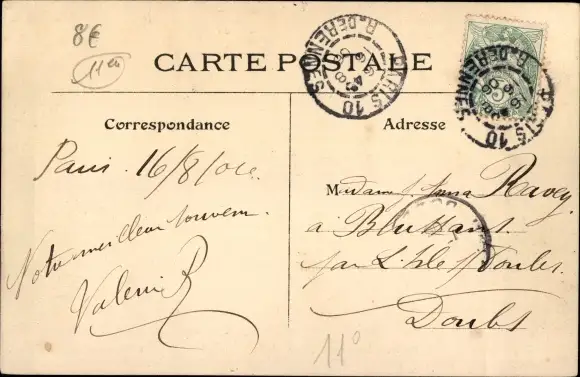 8€
11em
CARTE POSTALE
PARIS 10
R. DE RENNES
PARIS 10
R. DE RENNES
5
Correspondance
Adresse
Paris 16/8/04
Notre meilleur souvenir.
Valerie R
Madame Ravey
à Blussans.
par L'Isle s/ Doubs.
Doubs
11º